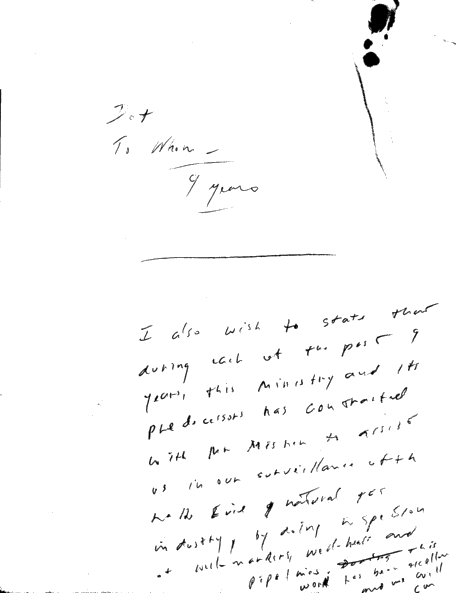 To Whom —
9 years
I also wish to state that
during each of the past 9
years, this Ministry and its
predecessors has contracted
with Mr to assist
us in our surveillance of th
natural gas
industry, by doing inspection
of well-heads and
pipelines. Doing This
work has been
and we will